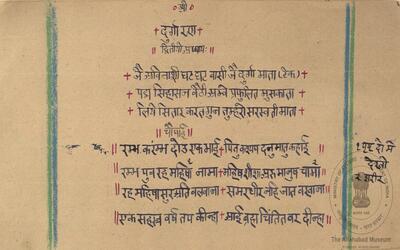 श्री
दुर्गा रण
द्वितीयो
जै अविनाशी घट घट वासी जै दुर्गा माता (टेक)
पद्म सिंहासन बैठी छवि प्रफुलित मुसकाता
लिये सितार करत गुन तुम्हरो सरस्वती माता
चौपाई
रम्भ करंम्भ दोउ एक भाई + पितु कश्यप दनु मातु कहाई
रम्भ पुत्र रह महिषी नामा + महिष शीश अरु मानुष चामा
रह महिषासुर वखाना + समरधीर नहि जात वखाना
एक सहस्त्र वर्ष तप कीन्हा + आई ब्रह्मा चिंतित वर दीन्हा
देखो
The Allahabad Museum